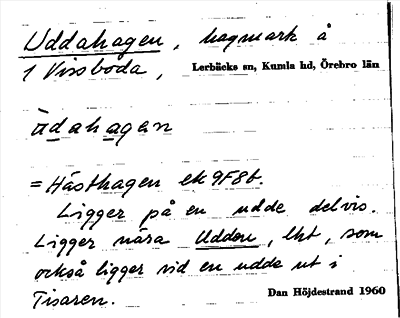 Uddahagen, hagmark å
1 Vissboda, Lerbäcks sn, Kumla hd, Örebro län
ùdahagan
= Hästhagen ek 9F8b.
Ligger på en udde delvis.
Ligger nära Udden, lht, som
också ligger vid en udde ut i
Tisaren. Dan Höjdestrand 1960